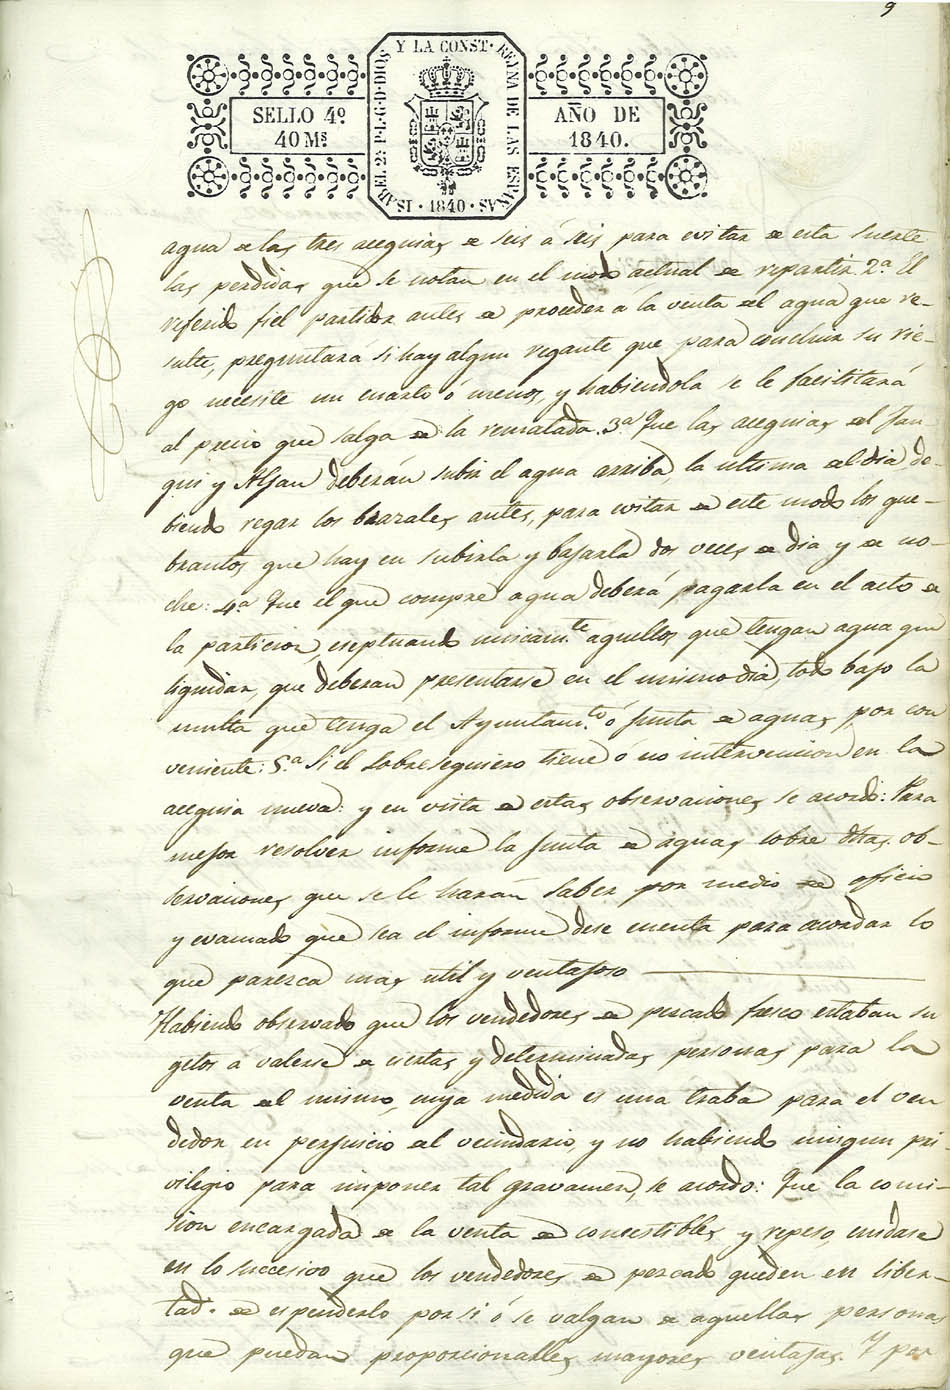 9
ISABEL 2ª P. L. G. D. DIOS Y LA CONST. REYNA DE LAS ESPAÑAS
SELLO 4º
40 Mˢ
AÑO DE
1840.
· 1840 ·
agua de las tres acequias de seis á seis para evitar de esta suerte
las perdidas que se notan en el modo actual de repartir. 2.ª El
referido fiel partidor antes de proceder á la venta del agua que re-
sulte, preguntará si hay algun regante que para concluir su rie-
go necesite un cuarto ó menos, y habiendola se le facilitará
al precio que salga de la rematada. 3.ª Que las acequias del Fau
qui y Aljau deberán subir el agua arriba, la ultima del dia, de-
biendo regar los brazales antes, para evitar de este modo los que-
brantos que hay en subirla y bajarla dos veces de dia y de no-
che: 4.ª Que el que compre agua deberá pagarla en el acto de
la particion, eseptuando unicam.te aquellos que tengan agua que
liquidar, que deberan presentarse en el mismo dia, todo bajo la
multa que tenga el Ayuntam.to ó Junta de aguas por con
veniente: 5.ª Si el Sobresequiero tiene ó no intervencion en la
acequia nueva: y en vista de estas observaciones se acordó: Para
mejor resolver informe la Junta de aguas sobre dhas. ob-
servaciones que se le harán saber por medio de oficio
y evacuado que sea el informe dese cuenta para acordar lo
que parezca mas util y ventajoso
Habiendo observado que los vendedores de pescado fresco estaban su
getos a valerse de ciertas y determinadas personas para la
venta del mismo, cuya medida es una traba para el ven
dedor en perjuicio del vecindario, y no habiendo ningun pri-
vilegio para imponer tal gravamen, se acordo: Que la comi-
sion encargada de la venta de comestibles y repeso, cuidase
en lo sucesivo que los vendedores de pescado queden en liber-
tad de espenderlo por si ó se valgan de aquellas personas
que puedan proporcionarles mayores ventajas. Y por